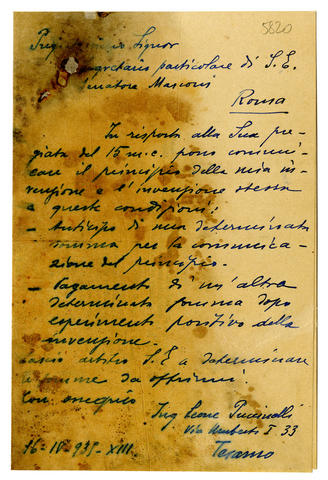 5820
Signor
particolare di S. E.
Senatore Marconi
Roma
In risposta alla Sua pre-
giata del 15 m.c. posso comuni-
care il principio della mia in-
venzione e l'invenzione stessa
a queste condizioni:
- Anticipo di una determinata
somma per la comunica-
zione del principio.
- Pagamento di un'altra
determinata somma dopo
esperimento positivo della
invenzione.
S. E. a determinare
le somme da offrirmi.
Con ossequio
Ing Leone
Via Umberto I 33
16-IV-935-XIII. Teramo